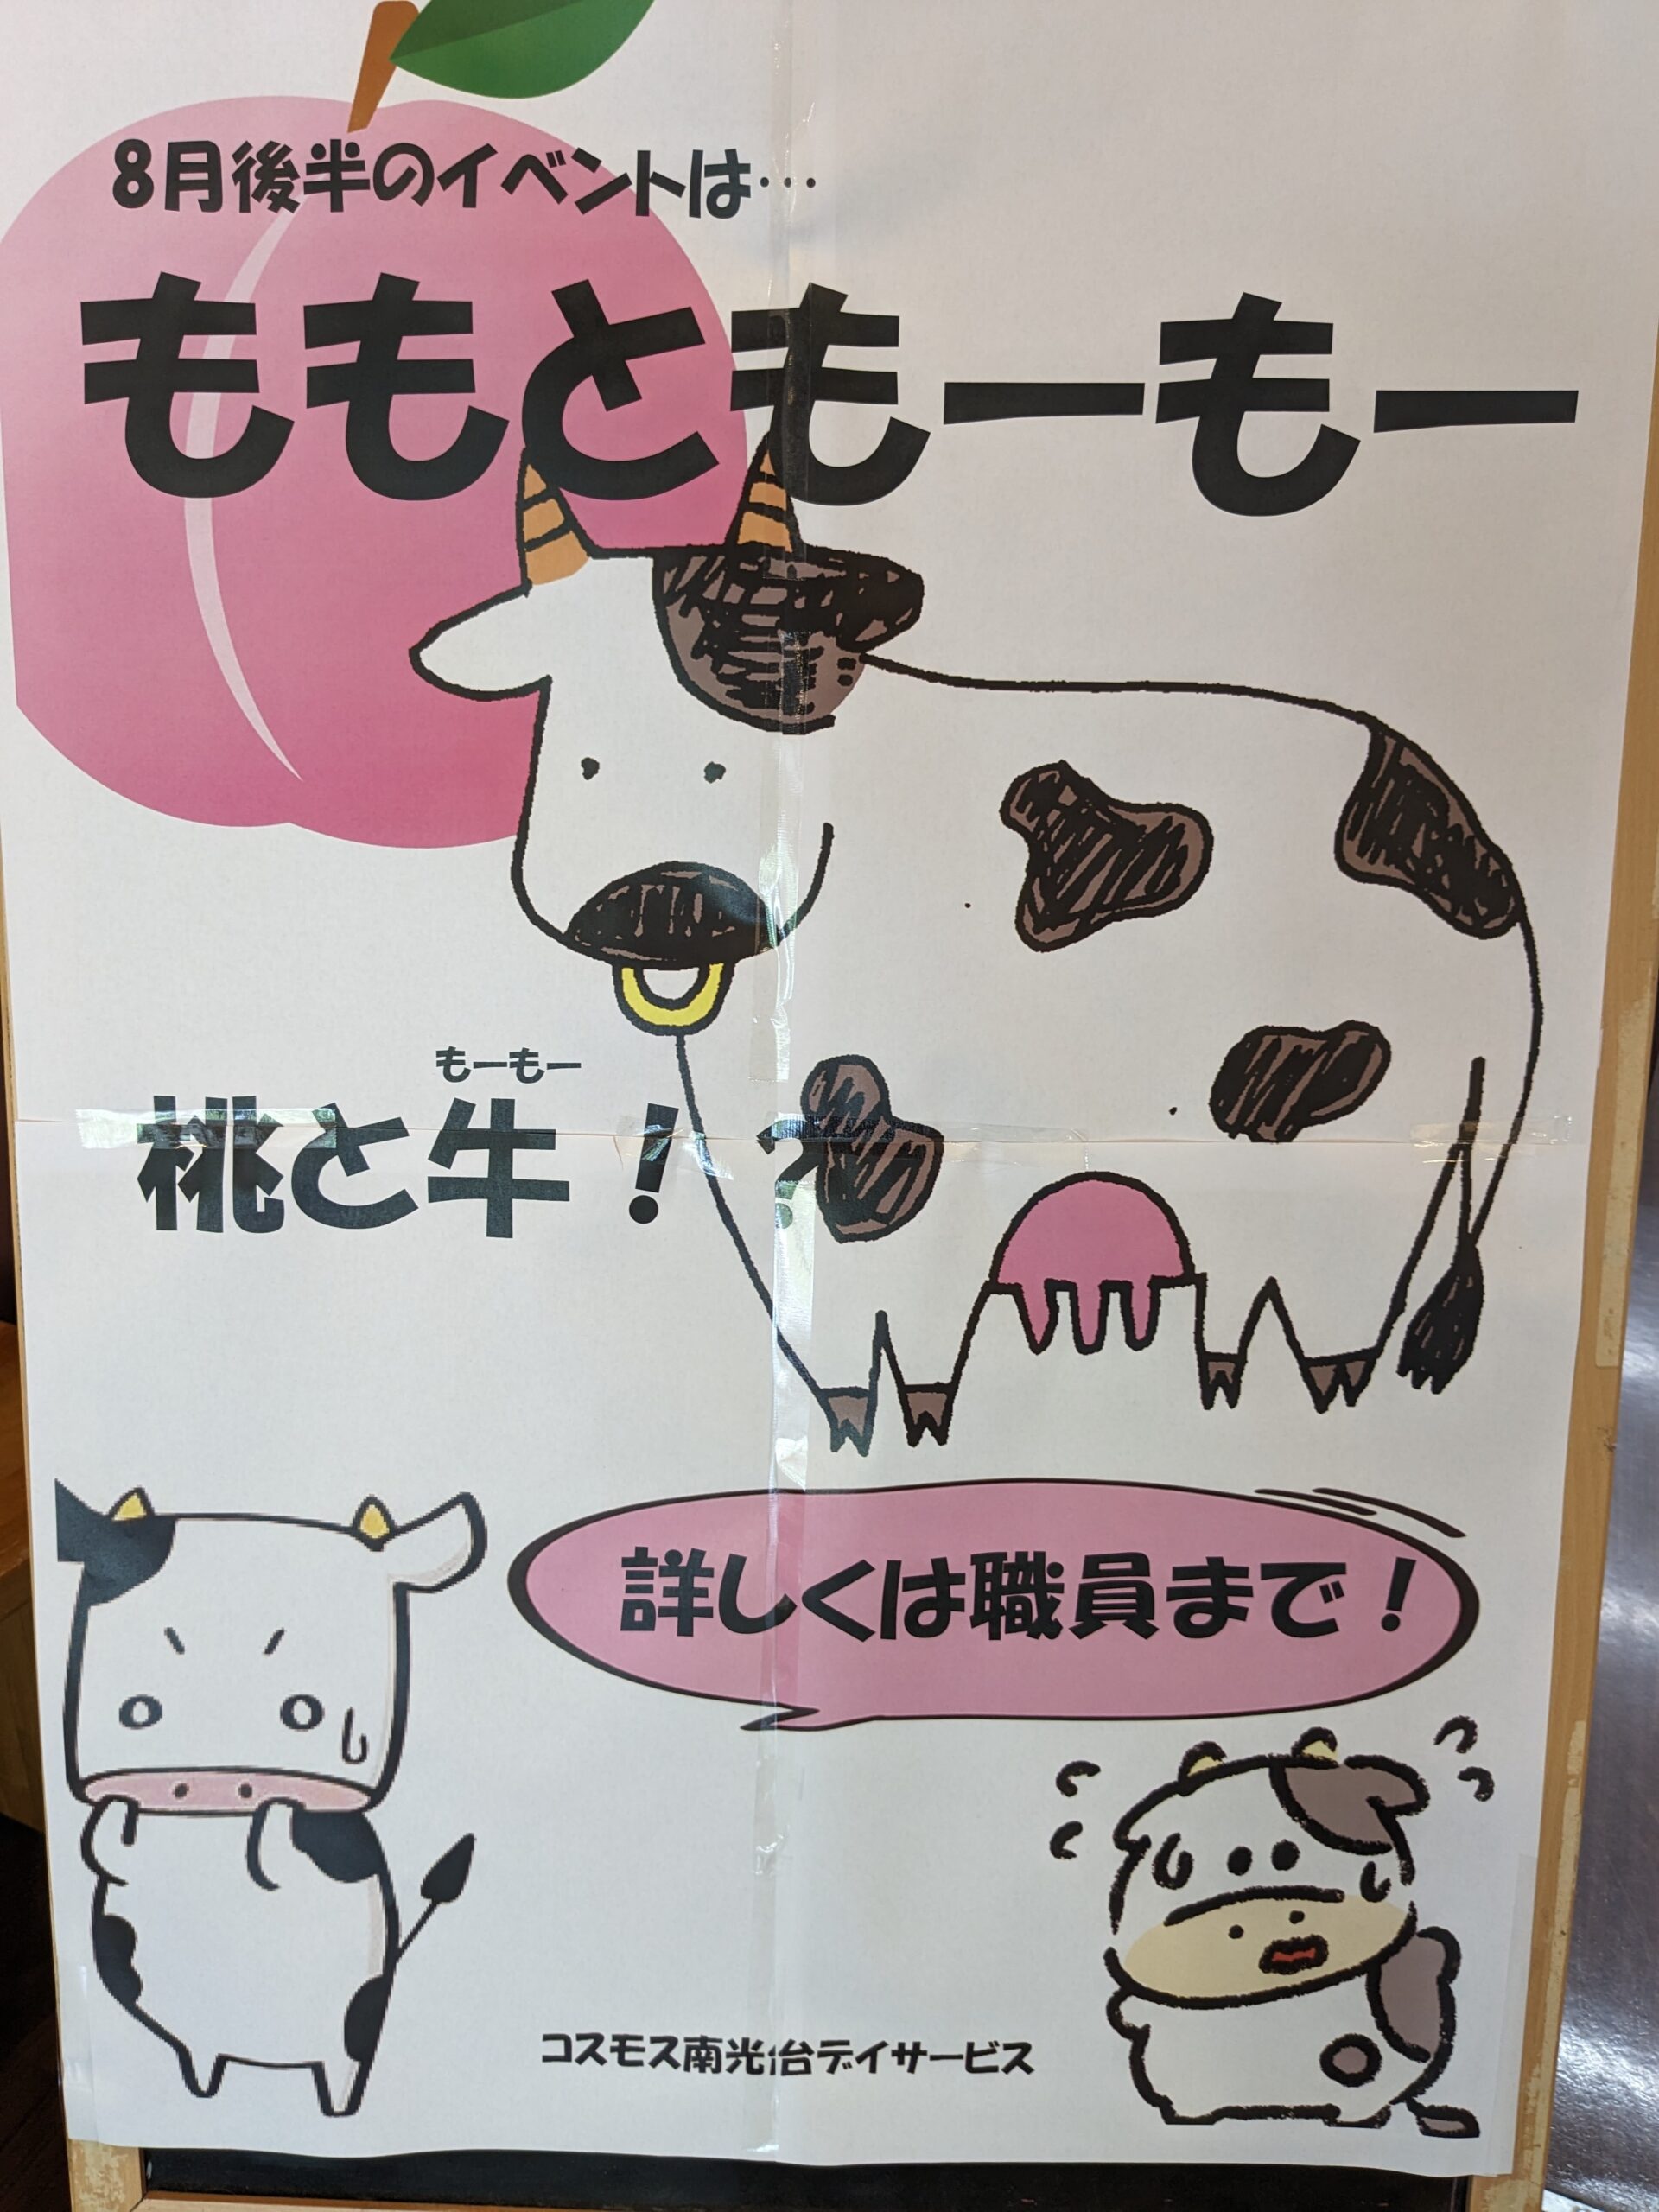 8月後半のイベントは…
ももともーもー
もーもー
桃と牛！？
詳しくは職員まで！
コスモス南光台デイサービス